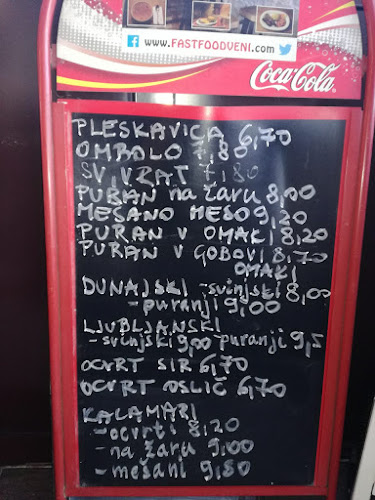 www.FASTFOODVENI.com
Coca-Cola
PLESKAVICA 6,70
OMBOLO 7,80
SV. VRAT 7,80
PURAN na žaru 8,00
MEŠANO MESO 9,20
PURAN V OMAKI 8,20
PURAN V GOBOVI 8,70
OMAKI
DUNAJSKI - svinjski 8,00
- puranji 9,00
LJUBLJANSKI
- svinjski 9,00 - puranji 9,5
OCVRT SIR 6,70
OCVRT OSLIČ 6,70
KALAMARI
- ocvrti 8,20
- na žaru 9,00
- mešani 9,80